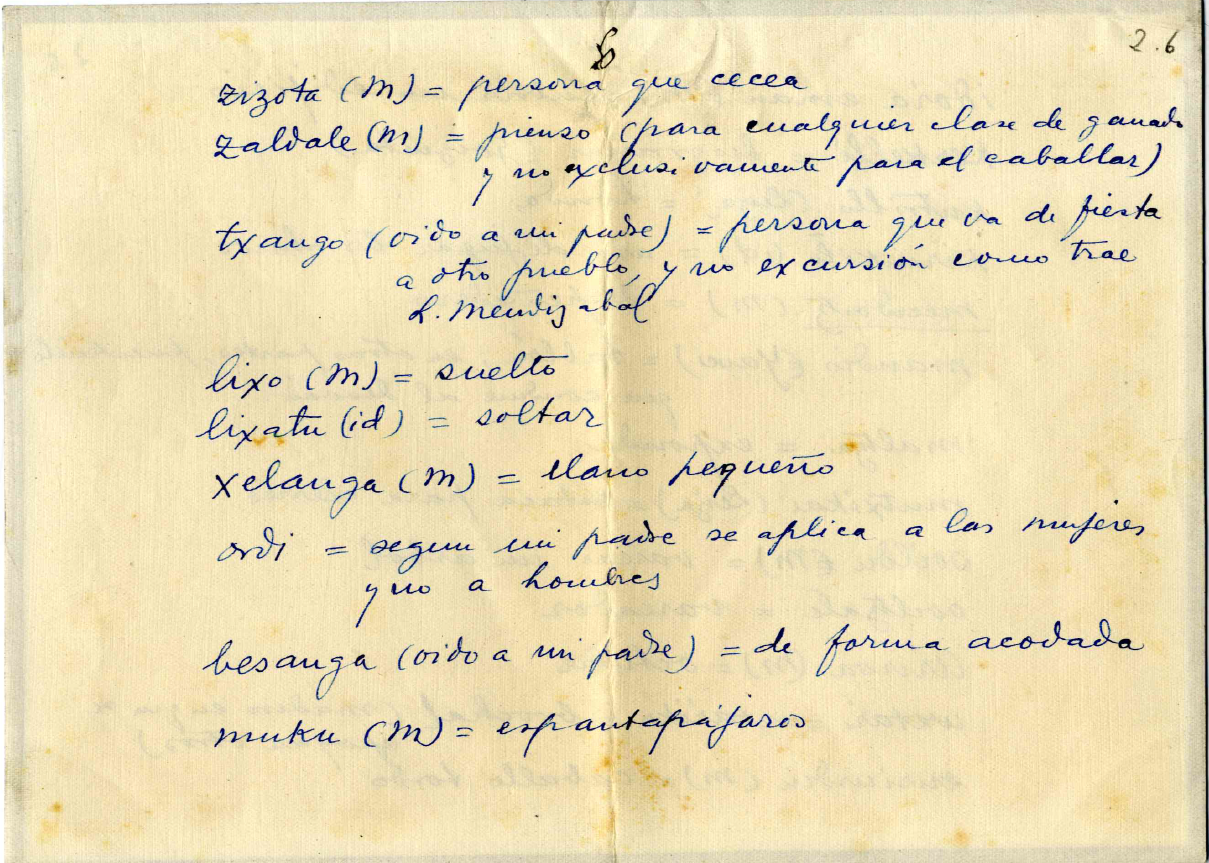 2.6
zizota (M) = persona que cecea
zaldale (M) = pienso (para cualquier clase de ganado
y no exclusivamente para el caballar)
txango (oido a mi padre) = persona que va de fiesta
a otro pueblo, y no excursión como trae
L. Mendizabal
lixo (M) = suelto
lixatu (id) = soltar
xelanga (M) = llano pequeño
ordi = segun mi padre se aplica a las mujeres
y no a hombres
besanga (oido a mi padre) = de forma acodada
muku (M) = espantapájaros